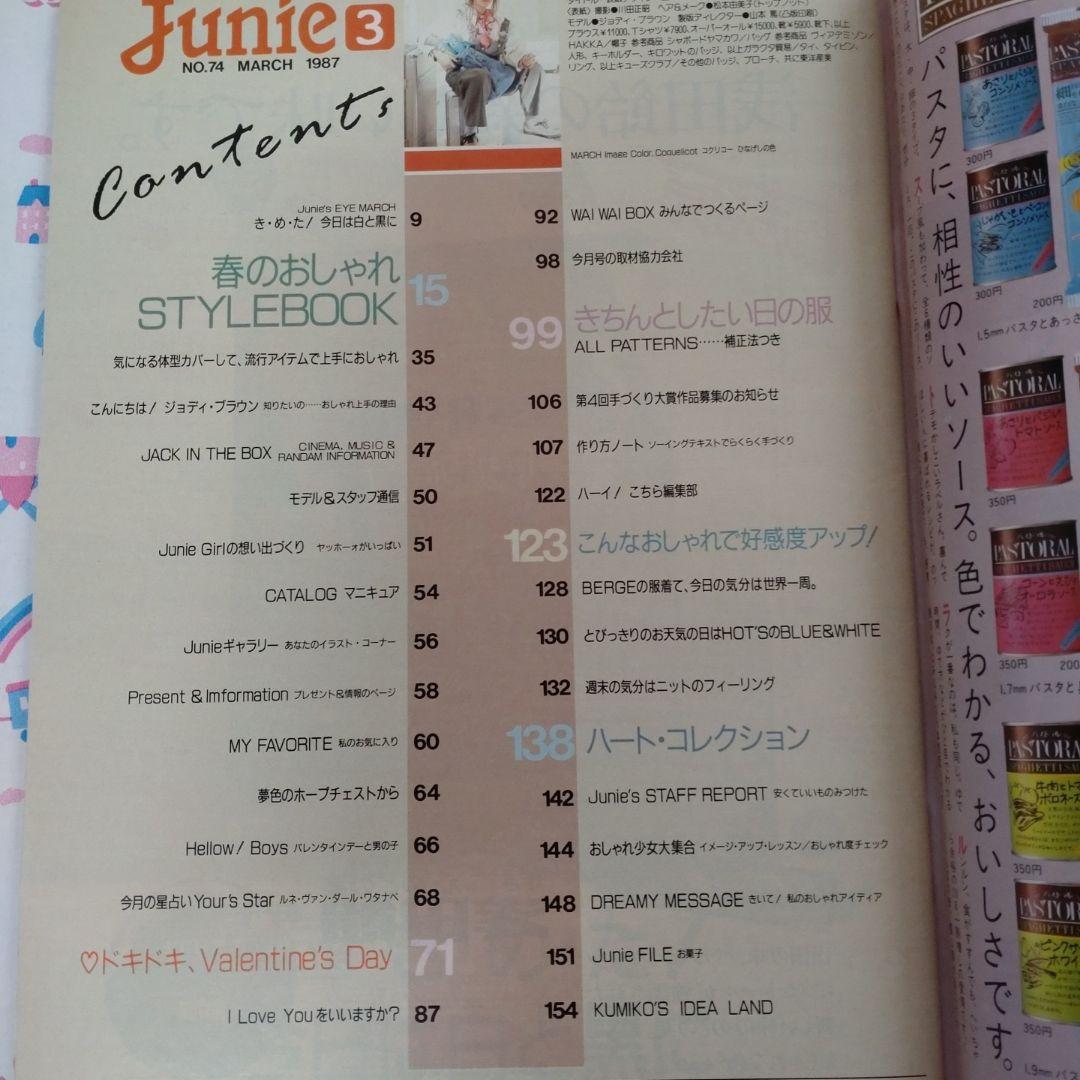 Junie 3
NO.74 MARCH 1987
Contents
〈表紙〉撮影●川田正昭 ヘア&メーク●松本由美子(トップノット)
モデル●ジョディ・ブラウン 製版ディレクター●山本 篤(凸版印刷)
ブラウス¥11000、Tシャツ¥7900、オーバーオール¥15000、靴¥5900、靴下、以上
HAKKA/帽子 参考商品 シャポードヤマカワ/バッグ 参考商品 ヴィアデミゾン/
人形、キーホルダー、キロワットのバッジ、以上ガラクタ貿易/タイ、タイピン、
リング、以上キューズクラブ/その他のバッジ、ブローチ、共に東洋産美
MARCH Image Color. Coquelicot コクリコー ひなげしの色
Junie's EYE MARCH
き・め・た! 今日は白と黒に 9
春のおしゃれ
STYLEBOOK 15
気になる体型カバーして、流行アイテムで上手におしゃれ 35
こんにちは! ジョディ・ブラウン 知りたいの……おしゃれ上手の理由 43
JACK IN THE BOX CINEMA, MUSIC & RANDAM INFORMATION 47
モデル&スタッフ通信 50
Junie Girlの想い出づくり ヤッホーォがいっぱい 51
CATALOG マニキュア 54
Junieギャラリー あなたのイラスト・コーナー 56
Present & Imformation プレゼント&情報のページ 58
MY FAVORITE 私のお気に入り 60
夢色のホープチェストから 64
Hellow! Boys バレンタインデーと男の子 66
今月の星占い Your's Star ルネ・ヴァン・ダール・ワタナベ 68
♡ドキドキ、Valentine's Day 71
I Love Youをいいますか? 87
92 WAI WAI BOX みんなでつくるページ
98 今月号の取材協力会社
99 きちんとしたい日の服
ALL PATTERNS……補正法つき
106 第4回手づくり大賞作品募集のお知らせ
107 作り方ノート ソーイングテキストでらくらく手づくり
122 ハーイ! こちら編集部
123 こんなおしゃれで好感度アップ!
128 BERGEの服着て、今日の気分は世界一周。
130 とびっきりのお天気の日はHOT'SのBLUE&WHITE
132 週末の気分はニットのフィーリング
138 ハート・コレクション
142 Junie's STAFF REPORT 安くていいものみつけた
144 おしゃれ少女大集合 イメージ・アップ・レッスン/おしゃれ度チェック
148 DREAMY MESSAGE きいて! 私のおしゃれアイディア
151 Junie FILE お菓子
154 KUMIKO'S IDEA LAND
パスタに、相性のいいソース。色でわかる、おいしさです。
PASTORAL
あさりとバジルの
コンソメソース
300円
PASTORAL
じゃがいもとベーコンの
コンソメソース
300円
200円
1.5mmパスタとあっさ
PASTORAL
あさりとバジルの
トマトソース
350円
PASTORAL
オーロラソース
350円
200
1.7mmパスタと
PASTORAL
350円
PASTORAL
350円
1.9mmパスタ